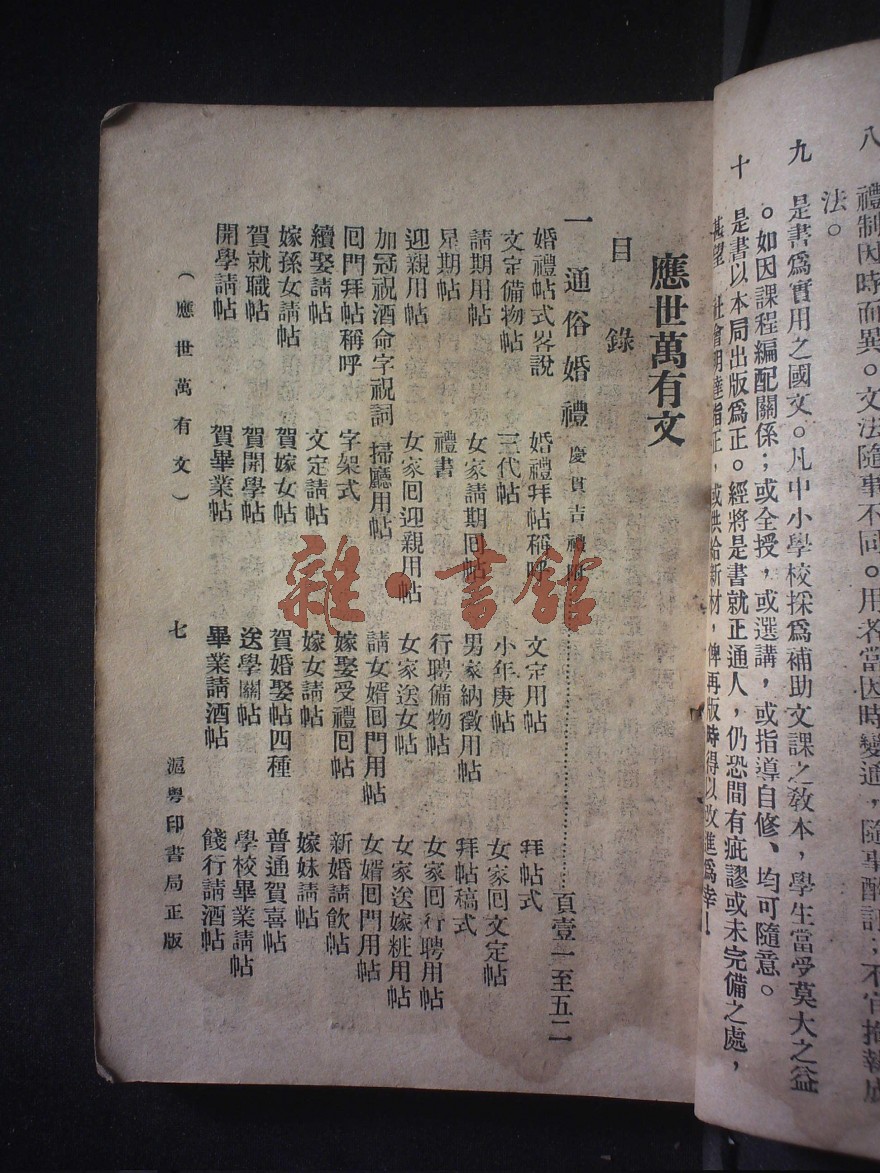 八 禮制因時而異。文法隨事不同。用者當因時變通，隨事酌訂；不宜拘執成
法。
九 是書爲實用之國文。凡中小學校採爲補助文課之敎本，學生當受莫大之益
。如因課程編配關係；或全授，或選講，或指導自修、均可隨意。
十 是書以本局出版爲正。經將是書就正通人，仍恐間有疵謬或未完備之處，
甚望 社會明達指正，或供給新材，俾再版時得以改進爲幸！
應世萬有文
目錄
一 通俗婚禮 慶賀吉禮附……頁壹一至五二
婚禮帖式畧說 婚禮拜帖稱呼 文定用帖 拜帖式
文定備物帖 三代帖 小年庚帖 女家囘文定帖
請期用帖 女家請期囘帖 男家納徵用帖 拜帖稿式
星期帖 禮書 行聘備物帖 女家囘行聘用帖
迎親用帖 女家囘迎親用帖 女家送女帖 女家送嫁粧用帖
加冠祝酒命字祝詞 掃廳用帖 請女婿囘門用帖 女婿囘門用帖
囘門拜帖稱呼 字架式 嫁娶受禮囘帖 新婚請飲帖
續娶請帖 文定請帖 嫁女請帖 嫁妹請帖
嫁孫女請帖 賀嫁女帖 賀婚娶帖四種 普通賀喜帖
賀就職帖 賀開學帖 送學關帖 學校畢業請帖
開學請帖 賀畢業帖 畢業請酒帖 餞行請酒帖
（應世萬有文） 七 滬粵印書局正版
雜·書館